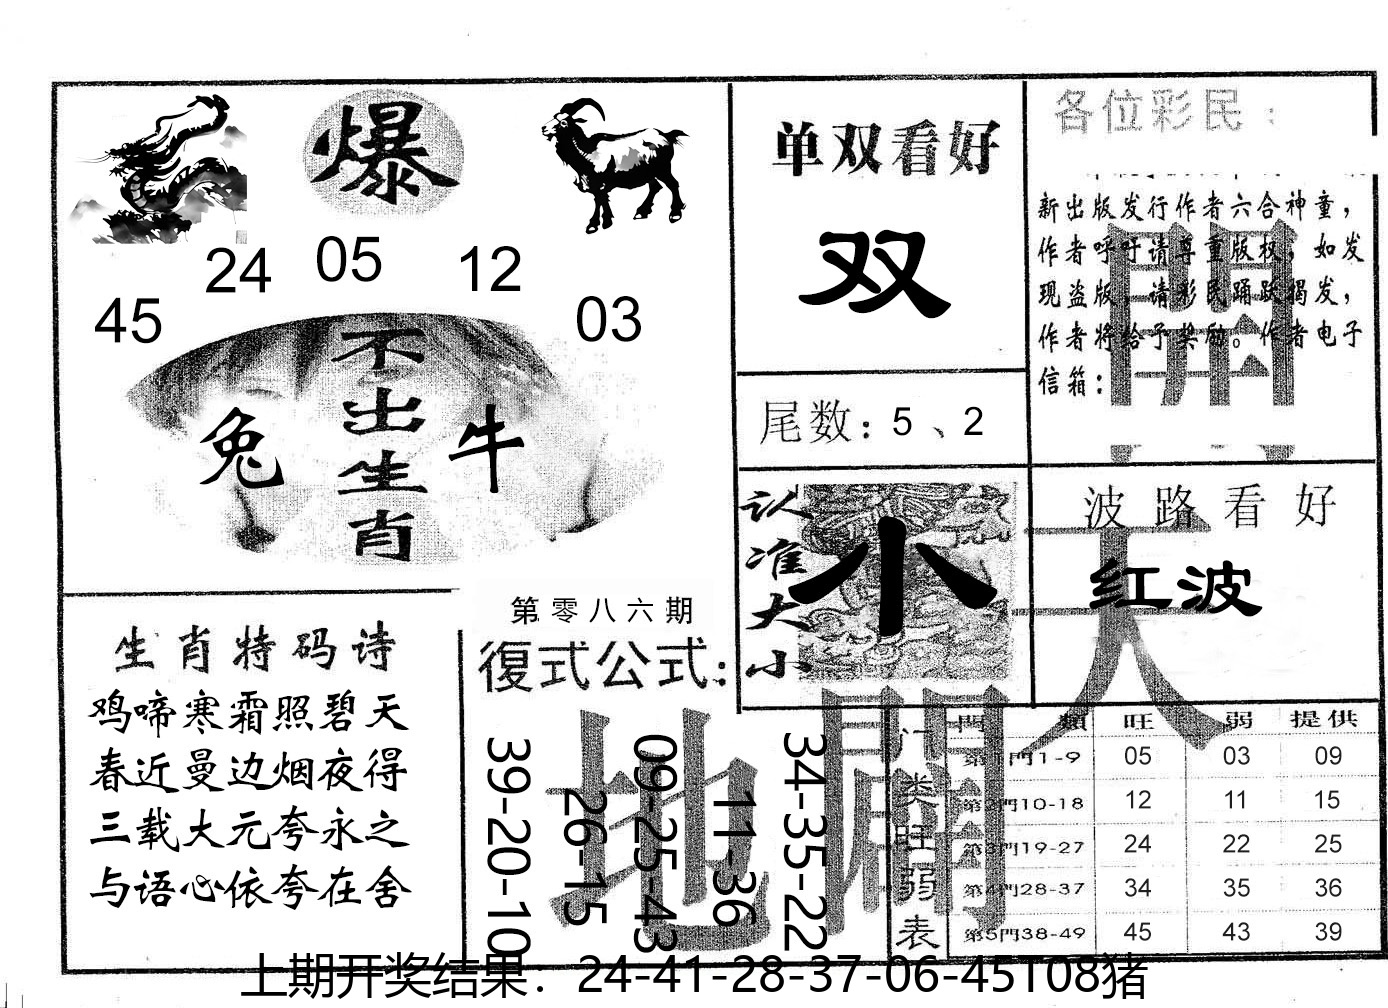 爆
24 05 12
45 03
不出生肖
兔 牛
单双看好
双
尾数：5、2
认准大小
小
各位彩民：
新出版发行作者六合神童，
作者呼吁请尊重版权，如发
现盗版，请彩民踊跃揭发，
作者将给予奖励。作者电子
信箱：
開
波路看好
红波
天
生肖特码诗
鸡啼寒霜照碧天
春近曼边烟夜得
三载大元夸永之
与语心依夸在舍
第零八六期
復式公式：
39-20-10
26-15
09-25-43
11-36
34-35-22
地 開
门类旺弱表
門 類 旺 弱 提供
第1門1-9 05 03 09
第2門10-18 12 11 15
第3門19-27 24 22 25
第4門28-37 34 35 36
第5門38-49 45 43 39
上期开奖结果：24-41-28-37-06-45T08猪